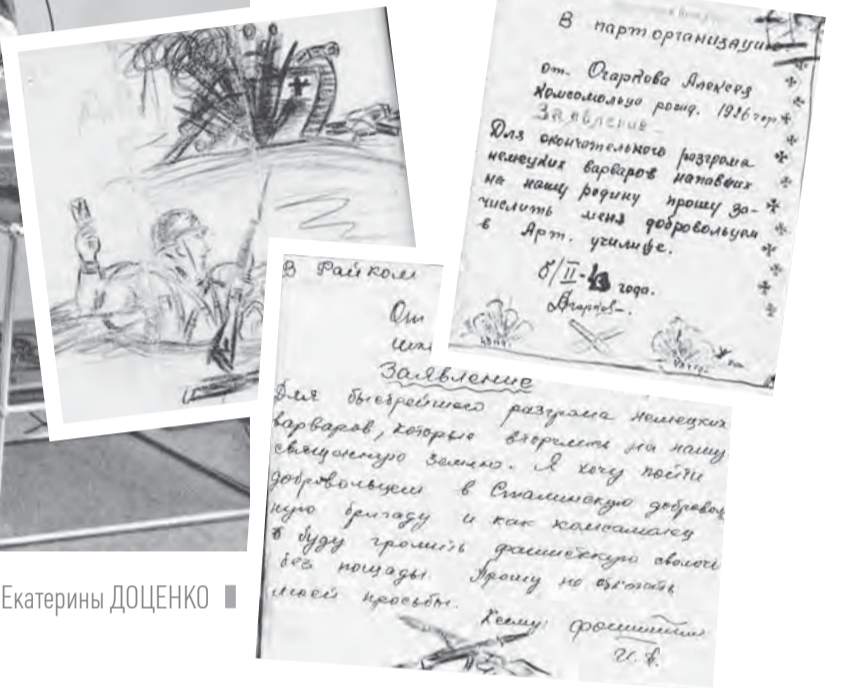 В парт организацию
от. Огаркова Алексея
комсомольца рожд. 1926 год.
Заявление
Для окончательного разгрома
немецких варваров напавших
на нашу родину прошу за-
числить меня добровольцем
в Арт. училище.
6/II-43 года.
В Райком
От
Заявление
Для быстрейшего разгрома немецких
варваров, которые вторглись на нашу
священную землю. Я хочу пойти
добровольцем в Сталинскую доброволь
ную бригаду и как комсамолец
буду громить фашистскую сволочь
без пощады. Прошу не отказать
моей просьбы.
Екатерины ДОЦЕНКО